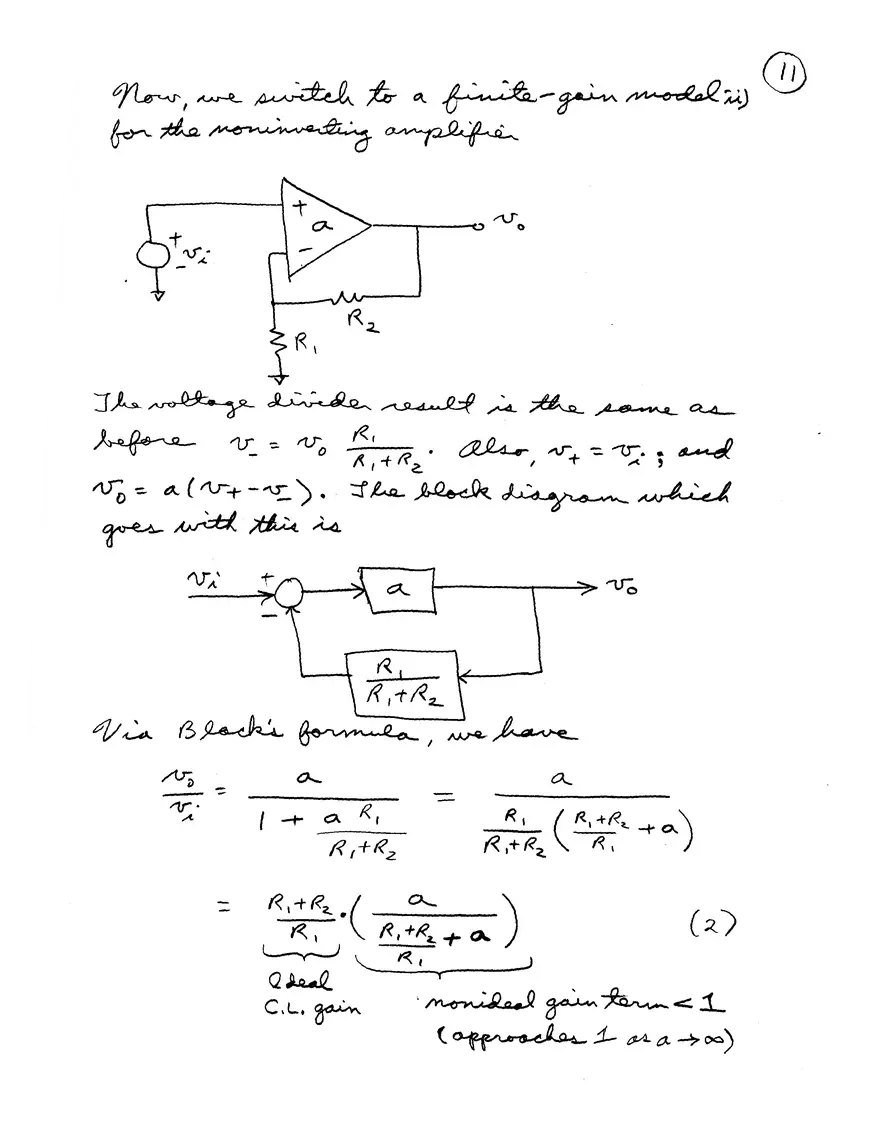 11
Now, we switch to a finite-gain model ii)
for the noninverting amplifier
+
a
-
v₀
+
vᵢ
-
R₂
R₁
The voltage divider result is the same as
before v₋ = v₀ R₁/(R₁+R₂). Also, v₊ = vᵢ; and
v₀ = a(v₊-v₋). The block diagram which
goes with this is
vᵢ + - a v₀
R₁/(R₁+R₂)
Via Black's formula, we have
v₀/vᵢ = a/(1 + a R₁/(R₁+R₂)) = a/(R₁/(R₁+R₂) ((R₁+R₂)/R₁ + a))
= (R₁+R₂)/R₁ · (a/((R₁+R₂)/R₁ + a)) (2)
Ideal
C.L. gain
nonideal gain term < 1
(approaches 1 as a → ∞)